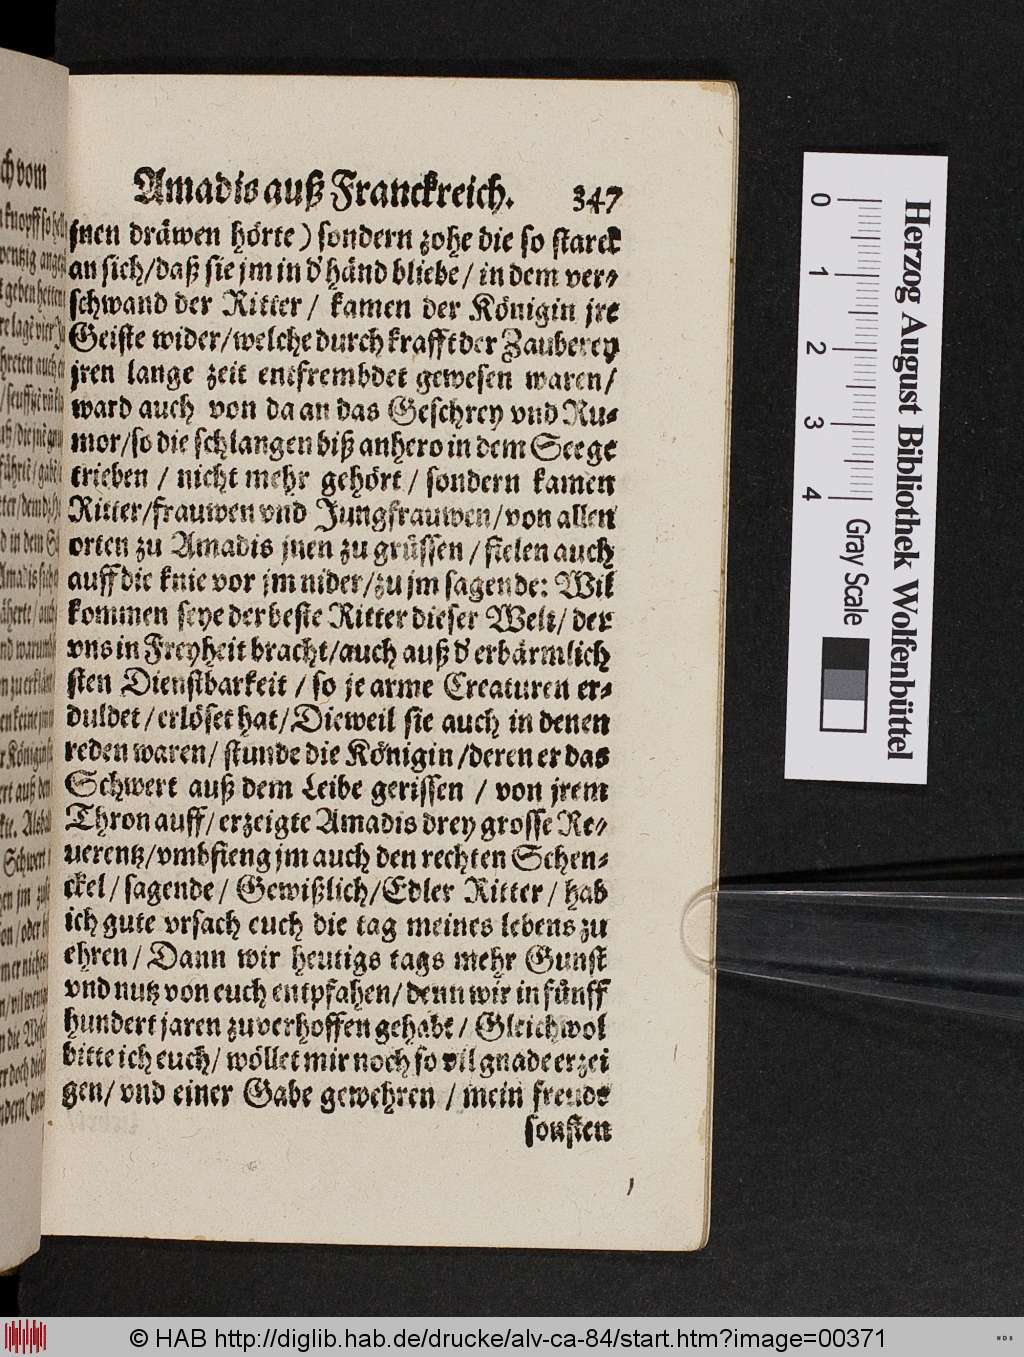 Amadis auß Franckreich. 347
jnen dräwen hörte) sondern zohe die so starck
an sich/daß sie jm in d' händ bliebe/ in dem ver-
schwand der Ritter/ kamen der Königin jre
Geiste wider/welche durch krafft der Zauberey
jren lange zeit entfrembdet gewesen waren/
ward auch von da an das Geschrey vnd Ru-
mor/so die schlangen biß anhero in dem See ge
trieben / nicht mehr gehört/ sondern kamen
Ritter/frauwen vnd Jungfrauwen/von allen
orten zu Amadis jnen zu grüssen/ fielen auch
auff die knie vor jm nider/zu jm sagende: Wil
kommen seye der beste Ritter dieser Welt/ der
vns in Freyheit bracht/auch auß d' erbärmlich
sten Dienstbarkeit / so je arme Creaturen er-
duldet/erlöset hat/ Dieweil sie auch in denen
reden waren/ stunde die Königin /deren er das
Schwert auß dem Leibe gerissen / von jrem
Thron auff/ erzeigte Amadis drey grosse Re-
uerentz/vmbfieng jm auch den rechten Schen-
ckel/ sagende/ Gewißlich/Edler Ritter/ hab
ich gute vrsach euch die tag meines lebens zu
ehren/ Dann wir heutigs tags mehr Gunst
vnd nutz von euch entpfahen/ denn wir in fünff
hundert jaren zuverhoffen gehabt/ Gleichwol
bitte ich euch/ wöllet mir noch so vil gnade erzei
gen/ vnd einer Gabe gewehren / mein freude
sonsten
Herzog August Bibliothek Wolfenbüttel
0 1 2 3 4
Gray Scale
© HAB http://diglib.hab.de/drucke/alv-ca-84/start.htm?image=00371